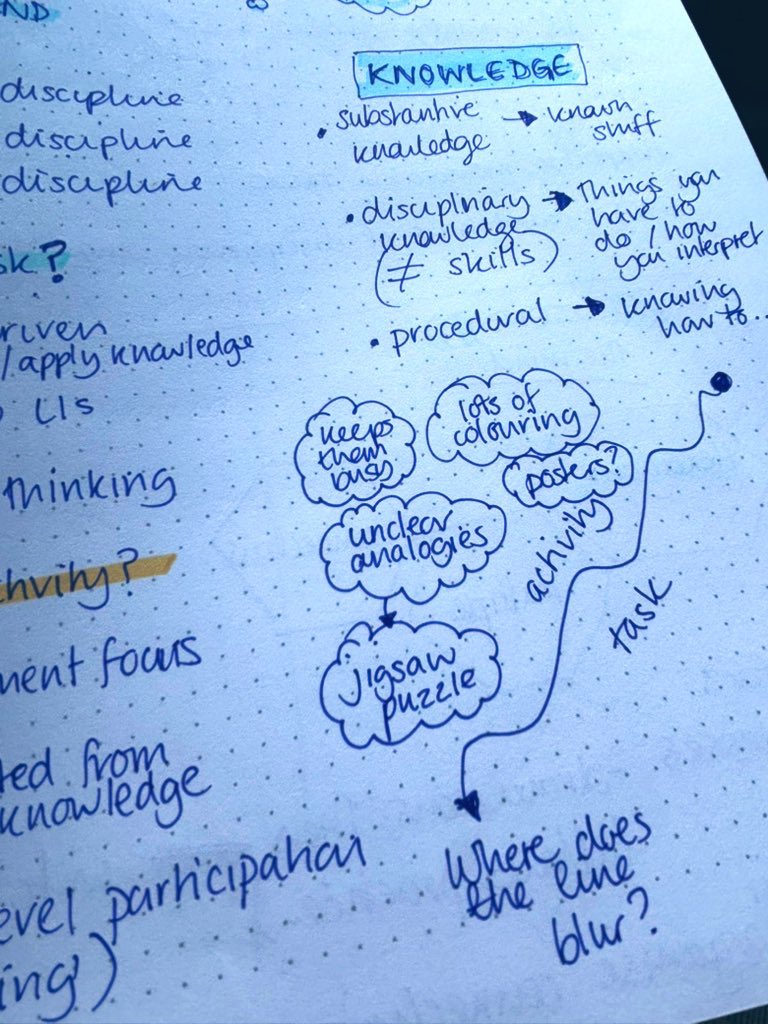 ND
discipline
discipline
discipline
sk?
riven
/apply knowledge
LIs
thinking
ctivity?
ment focus
ted from
knowledge
evel participation
ing)
KNOWLEDGE
• substantive → known
knowledge stuff
• disciplinary → Things you
knowledge have to
(≠ skills) do / how
you interpret
• procedural → knowing
how to...
keeps
them
busy
lots of
colouring
posters?
unclear
analogies
jigsaw
puzzle
activity
task
Where does
the line
blur?